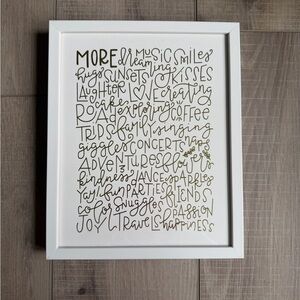 MORE dreaming MUSIC Smiles
hugs SUNSETS KISSES
LAUGHTER LOVE creating
ROAD cakes exploring COFFEE
TRIPS family singing
giggles CONCERTS naps
ADVENTURES flowers
kindness DANCES puddles
Yay! fun PARTIES FRIENDS
color Snuggles PASSION
JOY TRAVELS happiness